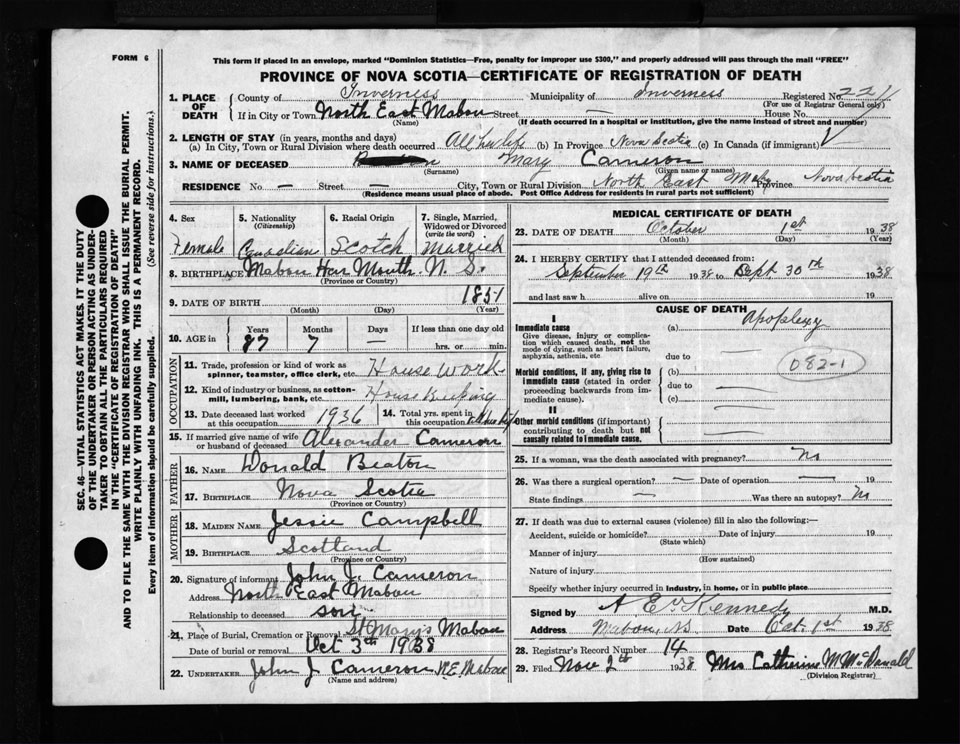 FORM 6
This form if placed in an envelope, marked "Dominion Statistics—Free, penalty for improper use $300," and properly addressed will pass through the mail "FREE"
PROVINCE OF NOVA SCOTIA—CERTIFICATE OF REGISTRATION OF DEATH
1. PLACE OF DEATH County of Inverness Municipality of Inverness Registered No. 2211
(For use of Registrar General only)
If in City or Town North East Mabou Street — House No.
(Name) (If death occurred in a hospital or institution, give the name instead of street and number)
2. LENGTH OF STAY (in years, months and days)
(a) In City, Town or Rural Division where death occurred All her life (b) In Province Nova Scotia (c) In Canada (if immigrant)
3. NAME OF DECEASED Mary Cameron
(Surname) (Given name or names)
RESIDENCE No. — Street — City, Town or Rural Division North East Mabou Province Nova Scotia
(Residence means usual place of abode. Post Office Address for residents in rural parts not sufficient)
4. Sex Female
5. Nationality (Citizenship) Canadian
6. Racial Origin Scotch
7. Single, Married, Widowed or Divorced (write the word) Married
8. BIRTHPLACE Mabou Har Mouth. N. S.
(Province or Country)
9. DATE OF BIRTH 1851
(Month) (Day) (Year)
10. AGE in Years 87 Months 7 Days — If less than one day old
hrs. or min.
OCCUPATION
11. Trade, profession or kind of work as spinner, teamster, office clerk, etc. House Work
12. Kind of industry or business, as cotton-mill, lumbering, bank, etc. House Keeping
13. Date deceased last worked at this occupation 1936
14. Total yrs. spent in this occupation All her life
15. If married give name of wife or husband of deceased Alexander Cameron
FATHER
16. NAME Donald Beaton
17. BIRTHPLACE Nova Scotia
(Province or Country)
MOTHER
18. MAIDEN NAME Jessie Campbell
19. BIRTHPLACE Scotland
(Province or Country)
20. Signature of informant John J. Cameron
Address North East Mabou
Relationship to deceased son
21. Place of Burial, Cremation or Removal St Mary's Mabou
Date of burial or removal Oct 3th 1938
22. UNDERTAKER John J Cameron N.E. Mabou
(Name and address)
MEDICAL CERTIFICATE OF DEATH
23. DATE OF DEATH October 1st 1938
(Month) (Day) (Year)
24. I HEREBY CERTIFY that I attended deceased from:
September 19th 1938 to Sept 30th 1938
and last saw h alive on 19
CAUSE OF DEATH
I
Immediate cause
Give disease, injury or complication which caused death, not the mode of dying, such as heart failure, asphyxia, asthenia, etc
(a) Apoplexy
due to
082-1
Morbid conditions, if any, giving rise to immediate cause (stated in order proceeding backwards from immediate cause).
(b)
due to
(c)
II
Other morbid conditions (if important) contributing to death but not causally related to immediate cause.
25. If a woman, was the death associated with pregnancy? No
26. Was there a surgical operation? — Date of operation — 19
State findings — Was there an autopsy? No
27. If death was due to external causes (violence) fill in also the following:—
Accident, suicide or homicide? Date of injury 19
(State which)
Manner of injury
(How sustained)
Nature of injury
Specify whether injury occurred in industry, in home, or in public place
Signed by A E Kennedy M.D.
Address Mabou, N.S. Date Oct. 1st 1938
28. Registrar's Record Number 14
29. Filed Nov 2th 1938 Mrs Catherine M McDonald
(Division Registrar)
SEC. 46—VITAL STATISTICS ACT MAKES IT THE DUTY
OF THE UNDERTAKER OR PERSON ACTING AS UNDER-
TAKER TO OBTAIN ALL THE PARTICULARS REQUIRED
IN THE "CERTIFICATE OF REGISTRATION OF DEATH"
AND TO FILE THE SAME WITH THE DIVISION REGISTRAR WHO SHALL ISSUE THE BURIAL PERMIT.
WRITE PLAINLY WITH UNFADING INK. THIS IS A PERMANENT RECORD.
Every item of information should be carefully supplied. (See reverse side for instructions.)